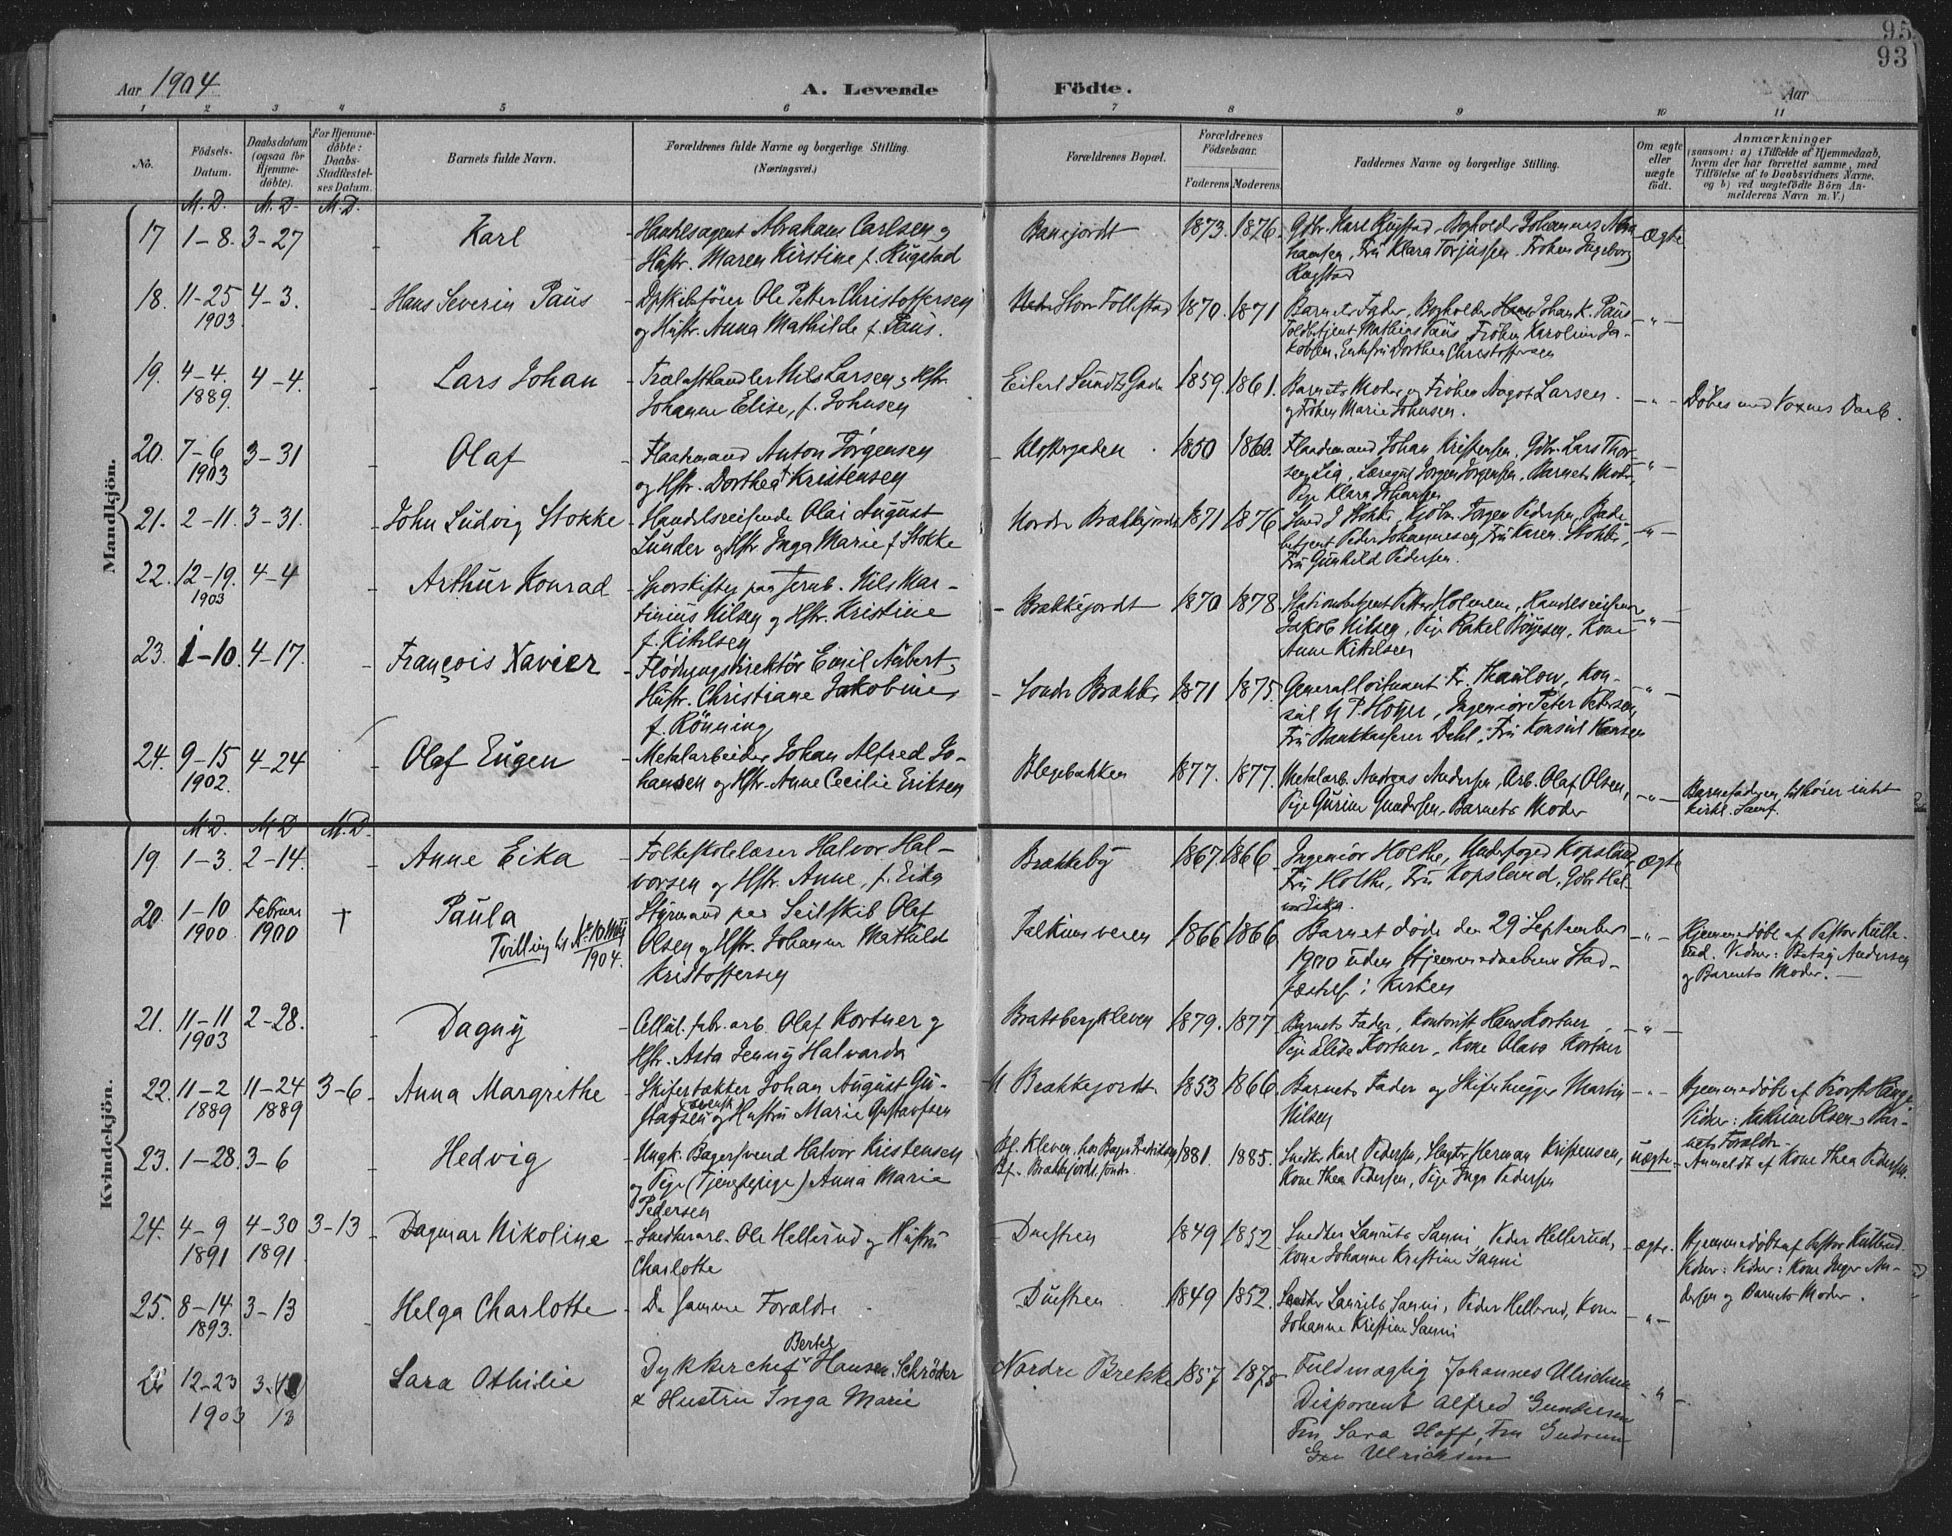 95
93
Aar 1904
A. Levende
Födte.
Aar
1 2 3 4 5 6 7 8 9 10 11
No.
Födsels-
Datum.
Daabsdatum
(ogsaa for
Hjemme-
döbte).
For Hjemme-
döbte:
Daabs-
Stadfæstel-
ses Datum.
Barnets fulde Navn.
Forældrenes fulde Navne og borgerlige Stilling.
(Næringsvei.)
Forældrenes Bopæl.
Forældrenes
Födselsaar.
Faderens Moderens
Faddernes Navne og borgerlige Stilling.
Om ægte
eller
uægte
födt.
Anmærkninger
(saasom: a) i Tilfælde af Hjemmedaab,
hvem der har forrettet samme, med
Tilföielse af to Daabsvidners Navne,
og b) ved uægtefödte Börn An-
melderens Navn m. V.)
M. D. M. D. M. D.
Mandkjön.
17 1-8. 3-27 - Karl
Handelsagent Abraham Carlsen og
Hustr. Maren Kirstine f. Rugstad
1873. 1876.
Fru Klara Torjussen, Frøken Ingeborg
Rugstad
ægte
18. 11-25 1903. 4-3. Hans Severin Paus
Ole Petter Christoffersen
og Hustr. Anna Mathilde f. Paus.
Store Follestad 1870. 1871
Barnets Fader, Bogholder Johan K. Paus
Toldbetjent Mathias Paus, Frøken Karoline Ja-
kobsen, Enkefru Dorthea Christoffersen
-"-
19. 4-4. 1889. 4-4. - Lars Johan
Trælasthandler Nils Larsen og Hstr.
Johanne Elise, f. Johnsen
Eilert Sundts Gade 1859. 1861.
Barnets Moder og Frøken Aagot Larsen.
og Frøken Marie Johnsen.
-"-
Døbes med Voxnes Daab.
20. 7-6 1903 3-31 - Olaf
Anton Jørgensen
og Hstr. Dorthea Kristensen
Klostergaden 1850 1860.
Johan Kristensen, Gdbr. Lars Thor-
sen Lia, Jørgen Jørgensen, Barnets Moder,
Pige Klara Johansen
-"-
21. 2-11. 3-31. - John Ludvig Stokke
Handelsreisende Olai August
Lunder og Hstr. Inga Marie f. Stokke
Nordre Brækkejordet 1871 1876
Jørgen Pedersen,
betjent Peder Johannesen, Fru Karen Stokke,
Fru Gunhild Pedersen.
-"-
22. 12-19. 1903 4-4 - Arthur Konrad
Sporskifter paa Jernb. Nils Mar-
tinius Nilsen og Hstr. Kristine
f. Kittilsen
Brækkejordt 1870 1878
Stationsbetjent Petter Holmene, Handelsreisende
Jakob Nilsen, Pige Rakel Børjesen, Kone
Anne Kittilsen
-"-
23. 1-10. 4-17. - François Xavier
Flødningsdirektør Emil Aubert,
Hustr. Christiane Jakobine
f. Rønning
Søndre Brække 1871 1875.
Generalløitnant Fr. Thaulow, Kon-
sul N P Høyer, Ingeniør Peter Petersen,
Fru Bankkasserer Dahl, Fru Konsul Hansen
-"-
24. 9-15 1902. 4-24 - Olaf Eugen
Metalarbeider Johan Alfred Jo-
hansen og Hstr. Anne Cecilie Eriksen
Blegebakken 1877. 1877.
Metalarb. Andreas Andersen, Arb. Olaf Olsen,
Pige Gurine Gundersen, Barnets Moder
-"-
Barnefaderen tilhører intet
kirkl. Samf.
M. D. M. D M. D.
Kvindekjön.
19. 1-3 2-14. - Anne Eika
Folkeskolelærer Halvor Hal-
vorsen og Hstr. Anne, f. Eika
Brækkeby 1867. 1866
Ingeniør Holthe, Underfoged Kopsland,
Fru Holthe, Fru Kopsland, Gdbr. Hal-
vor Eika.
ægte
20. 1-10 1900. Februar 1900 † Paula
Tvilling til No 10 1904.
Styrmand paa Seilskib Olaf
Olsen og Hstr. Johanne Mathilde
Kristoffersen
Falkumveien 1866 1866
Barnet døde den 29 September
1900 uden Hjemmedaabens Stad-
fæstelse i Kirken
-"-
Hjemmedøbt af Pastor Kulle-
rud. Vidner: Betsy Andersen
og Barnets Moder.
21. 11-11 1903 2-28. - Dagny
Cellul. fabr. arb. Olaf Kortner og
Hstr. Asta Jenny Halvarda
Bratsbergkleven 1879. 1877
Barnets Fader, Kontorist Hans Kortner
Pige Elide Kortner, Kone Olava Kortner
-"-
22. 11-2 1889 11-24 1889 3-6 - Anna Margrethe
Skifertækker Johan August Gu-
stafsen og Hustru Marie Gustavsen
N Brækkejordt 1853 1866
Barnets Fader og Skiferhugger Martin
Nilsen
-"-
Hjemmedøbt af Provst
Vidner: Kathrine Olsen, Bar-
nets Forældre
23. 1-28. 3-6 - Hedvig
Ungk. Bagersvend Halvor Kristensen
og Pige (Tjenestepige) Anna Marie
Pedersen
1881. 1885.
Snedker Karl Pedersen, Slagter Herman Kristensen,
Kone Thea Pedersen, Pige Inga Pedersen
uægte
Anmeldt af Kone Thea Pedersen.
24. 4-9 1891 4-30 1891 3-13 - Dagmar Nikoline
Snedkerarb. Ole Hellerud og Hustru
Charlotte
Duestien 1849 1852
Snedker Laurits Sanni, Peder Hellerud,
Kone Johanne Kristine Sanni
ægte.
Hjemmedøbt af Pastor Kullerud.
Vidner: Vidner: Kone Inger An-
dersen og Barnets Moder.
25. 8-14 1893. 3-13 - Helga Charlotte
De samme Forældre
Duestien 1849 1852.
Snedker Laurits Sanni, Peder Hellerud, Kone
Johanne Kristine Sanni
-"-
26 12-23 1903 3-13 13 Sara Othilie
Bertel
Dykkerchef Hansen Schröder
& Hustru Inga Marie
Nordre Brekke 1857 1875
Fuldmægtig Johannes Ulrichsen
Disponent Alfred Gundersen
Fru Sara Hoff, Fru Gudrun
Ulrichsen
-"-